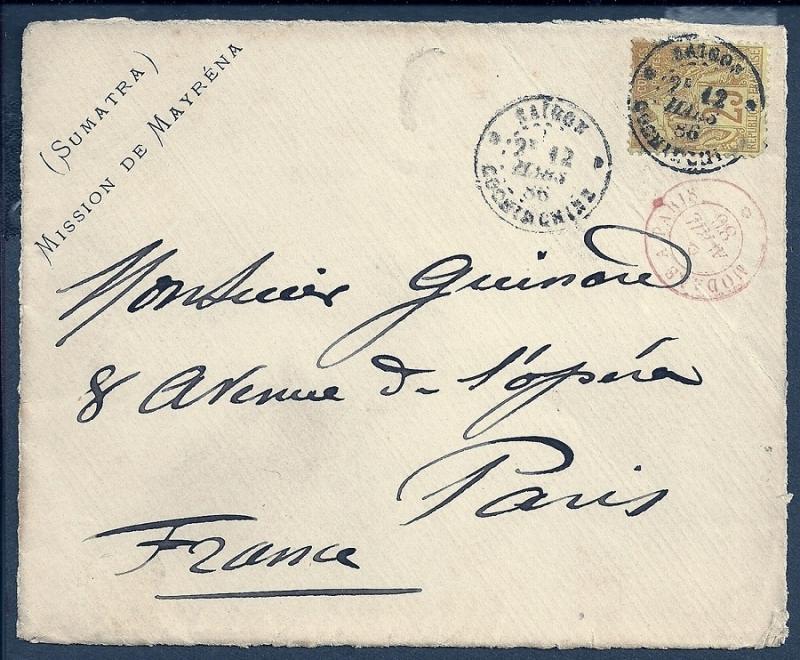 (SUMATRA)
MISSION DE MAYRÉNA
SAIGON
12
MARS
86
COCHINCHINE
SAIGON
12
MARS
86
COCHINCHINE
25
MODANE A PARIS
AVRIL
86
Monsieur Guinard
8 Avenue de l'opéra
Paris
France